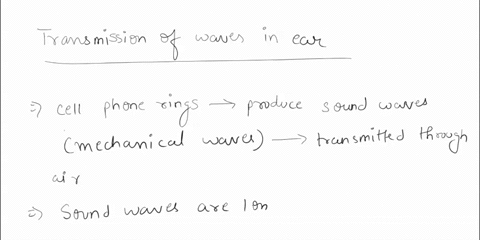 Transmission of waves in ear
⇒ cell phone rings → produce sound waves
(mechanical waves) → transmitted through
air
⇒ Sound waves are lon